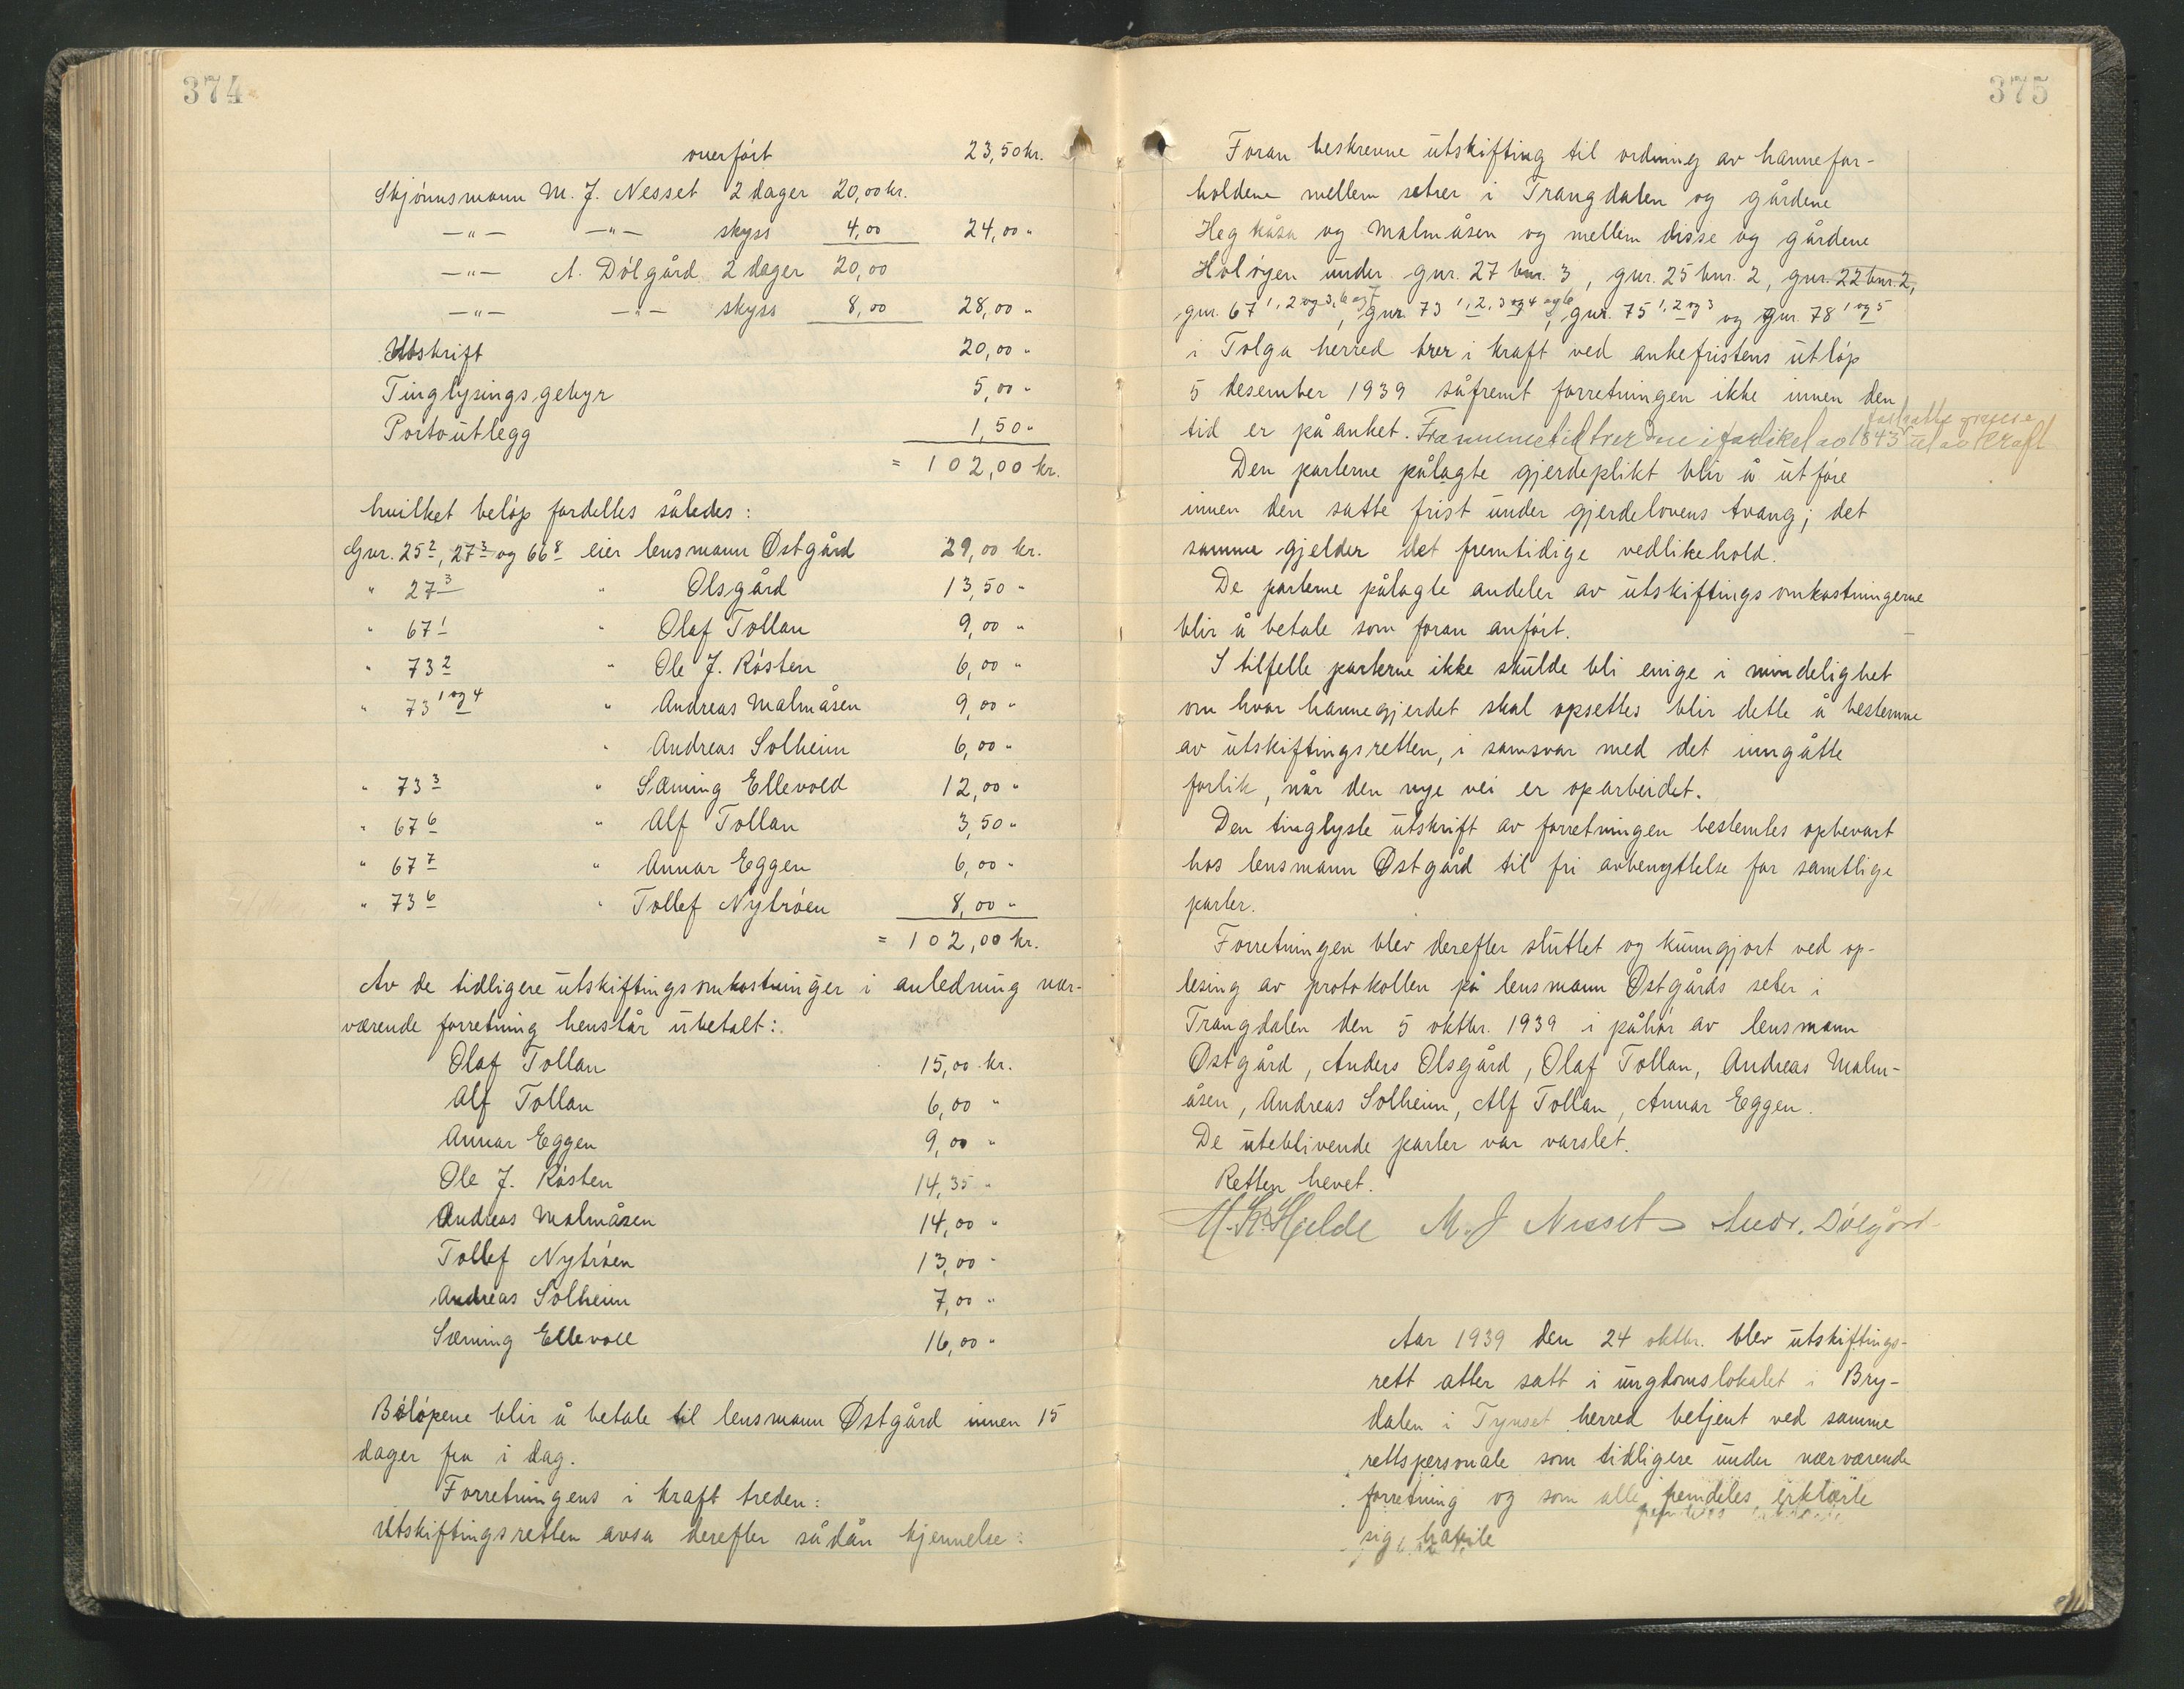 374
overført 23,50 kr.
Skjønnsmann M. J. Nesset 2 dager 20,00 kr.
—"— —"— skyss 4,00 24,00 "
—"— A. Dølgård 2 dager 20,00
—"— —"— skyss 8,00 28,00 "
Utskrift 20,00 "
Tinglysingsgebyr 5,00 "
Portoutlegg 1,50 "
= 102,00 kr.
hvilket beløp fordelles således:
Gnr. 25², 27³ og 66⁸ eier lensmann Østgård 29,00 kr.
" 27³ " Olsgård 13,50 "
" 67¹ " Olaf Tollan 9,00 "
" 73² " Ole J. Røsten 6,00 "
" 73¹ ᵒᵍ ⁴ " Andreas Malmåsen 9,00 "
" Andreas Solheim 6,00 "
" 73³ " Sæming Ellevold 12,00 "
" 67⁶ " Alf Tollan 3,50 "
" 67⁷ " Annar Eggen 6,00 "
" 73⁶ " Tollef Nytrøen 8,00 "
= 102,00 kr.
Av de tidligere utskiftingsomkostninger i anledning nær-
værende forretning henstår ubetalt:
Olaf Tollan 15,00 kr.
Alf Tollan 6,00 "
Annar Eggen 9,00 "
Ole J. Røsten 14,35 "
Andreas Malmåsen 14,00 "
Tollef Nytrøen 13,00 "
Andreas Solheim 7,00 "
Sæming Ellevoll 16,00 "
Beløpene blir å betale til lensmann Østgård innen 15
dager fra i dag.
Forretningens i kraft treden:
Utskiftingsretten avsa derefter sådån kjennelse:
375
Foran beskrevne utskifting til ordning av havnefor-
holdene mellem setrer i Trangdalen og gårdene
Hegkåsa og Malmåsen og mellem disse og gårdene
Holøyen under gnr. 27 bnr. 3, gnr. 25 bnr. 2, gnr. 22 bnr. 2,
gnr. 67 ¹, ² ᵒᵍ ³, ⁶ ᵒᵍ ⁷, gnr. 73 ¹, ², ³ ᵒᵍ ⁴ ᵒᵍ ⁶, gnr. 75 ¹, ² ᵒᵍ ³ og gnr. 78 ¹ ᵒᵍ ⁵
i Tolga herred trer i kraft ved ankefristens utløp
5 desember 1939 såfremt forretningen ikke innen den
tid er påanket. Fra samme tid trer den i forliket av 1843 fastsatte grense ut av kraft
Den parterne pålagte gjerdeplikt blir å utføre
innen den satte frist under gjerdelovens tvang; det
samme gjelder det fremtidige vedlikehold.
De parterne pålagte andeler av utskiftingsomkostningerne
blir å betale som foran anført.
I tilfelle parterne ikke skulde bli enige i mindelighet
om hvor havnegjerdet skal opsettes blir dette å bestemme
av utskiftingsretten, i samsvar med det inngåtte
forlik, når den nye vei er oparbeidet.
Den tinglyste utskrift av forretningen bestemtes opbevart
hos lensmann Østgård til fri avbenyttelse for samtlige
parter.
Forretningen blev derefter sluttet og kunngjort ved op-
lesing av protokollen på lensmann Østgårds seter i
Trangdalen den 5 oktbr. 1939 i påhør av lensmann
Østgård, Anders Olsgård, Olaf Tollan, Andreas Malm-
åsen, Andreas Solheim, Alf Tollan, Annar Eggen.
De uteblivende parter var varslet.
Retten hevet.
M. K. Hjelde M. J Nesset Andr. Dølgård
Aar 1939 den 24 oktbr. blev utskiftings-
rett atter satt i ungdomslokalet i Bry-
dalen i Tynset herred betjent ved samme
rettspersonale som tidligere under nærværende
forretning og som alle fremdeles erklærte
sig habile